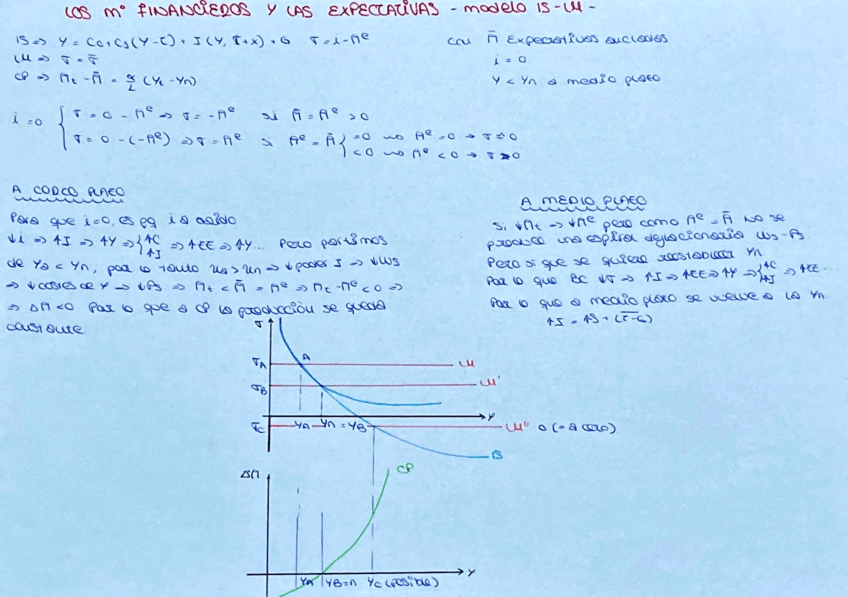 LOS mº FINANCIEROS Y LAS EXPECTATIVAS - modelo IS-LM -
IS => Y = C0 + C1(Y-T) + I(Y, r+x) + G   r = i - πe
LM => r = r̄
CP => πt - π̄ = α/L (Yt - Yn)
con π̄ Expectativas ancladas
i = 0
Y < Yn a medio plazo
i = 0 { r = 0 - πe => r = -πe   si π̄ = πe > 0
r = 0 - (-πe) => r = πe   si πe = π̄ { = 0 πe = 0 → r = 0
< 0 πe < 0 → r > 0
A CORTO PLAZO
Para que i=0, es pq i ha caído
↓i => ↑I => ↑Y => {↑C ↑I => ↑EE => ↑Y... Pero partimos
de Ya < Yn, por lo tanto ua > un => ↓poder => ↓WS
=> ↓costes de => ↓PS => πt < π̄ = πe => πt - πe < 0 =>
=> Δπ < 0 Por lo que a CP la producción se queda
constante
A MEDIO PLAZO
Si ↓πt => ↓πe pero como πe = π̄ no se
produce una espiral deflacionaria WS-PS
Pero si que se quiere reestablecer Yn
Por lo que BC ↓r => ↑I => ↑EE => ↑Y => {↑C ↑I => ↑EE...
Por lo que a medio plazo se vuelve a la Yn.
↑I = ↑S + (T-G)
r
rA
A
LM
rB
LM'
Y
rC
YA
Yn = YB
LM'' o (= a cero)
IS
CP
Δπ
YA
YB=n
YC (posible)
Y